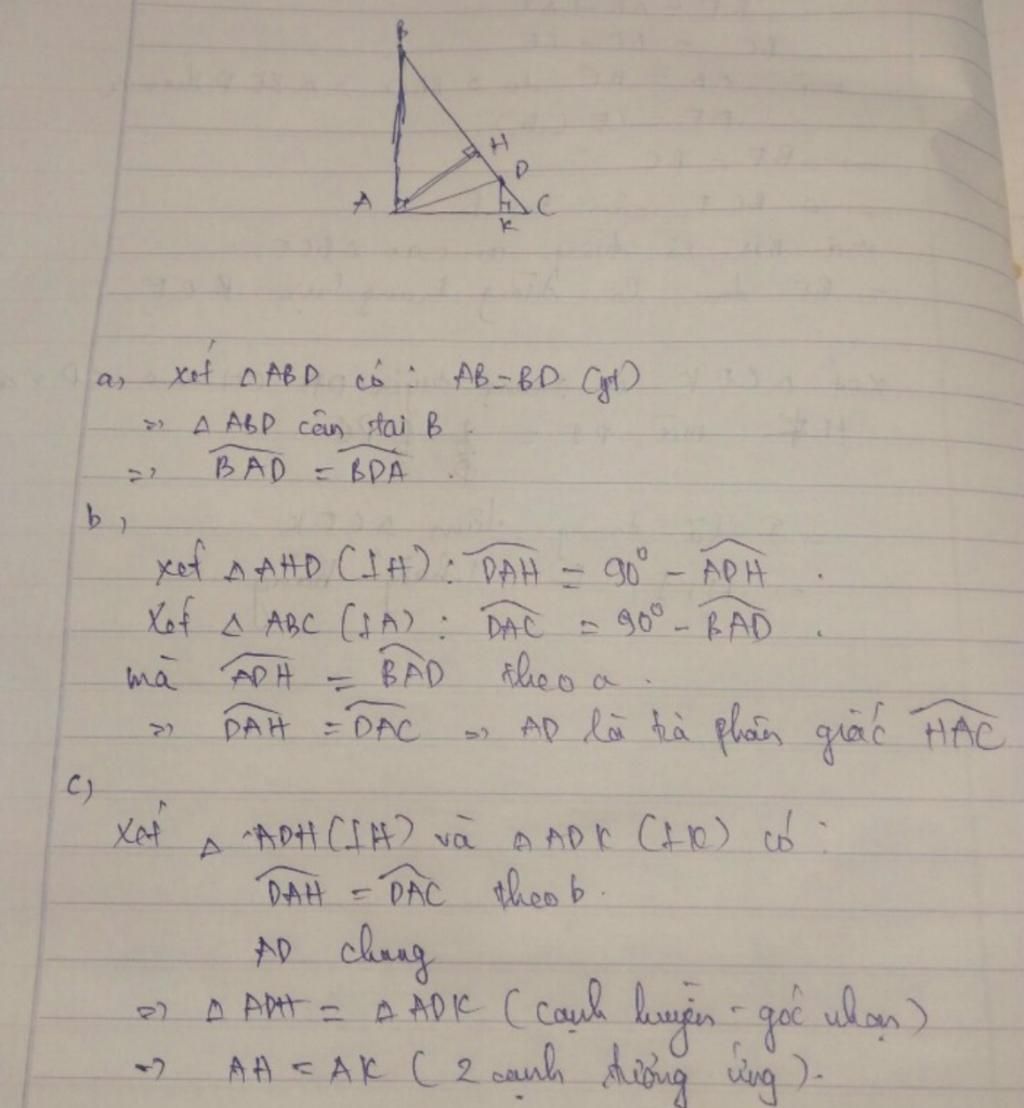 B
H
D
A
C
K
a, Xét △ABD có : AB=BD (gt)
=> △ ABD cân tại B
=> BAD = BDA .
b,
xét △AHD (⊥H) : DAH = 90° - ADH .
Xét △ ABC (⊥A) : DAC = 90° - BAD .
mà ADH = BAD theo a .
=> DAH = DAC => AD là tia phân giác HAC
c)
Xét △ ADH (⊥H) và △ ADK (⊥K) có :
DAH = DAC theo b .
AD chung
=> △ ADH = △ ADK (cạnh huyền - góc nhọn)
=> AH = AK ( 2 cạnh tương ứng ).